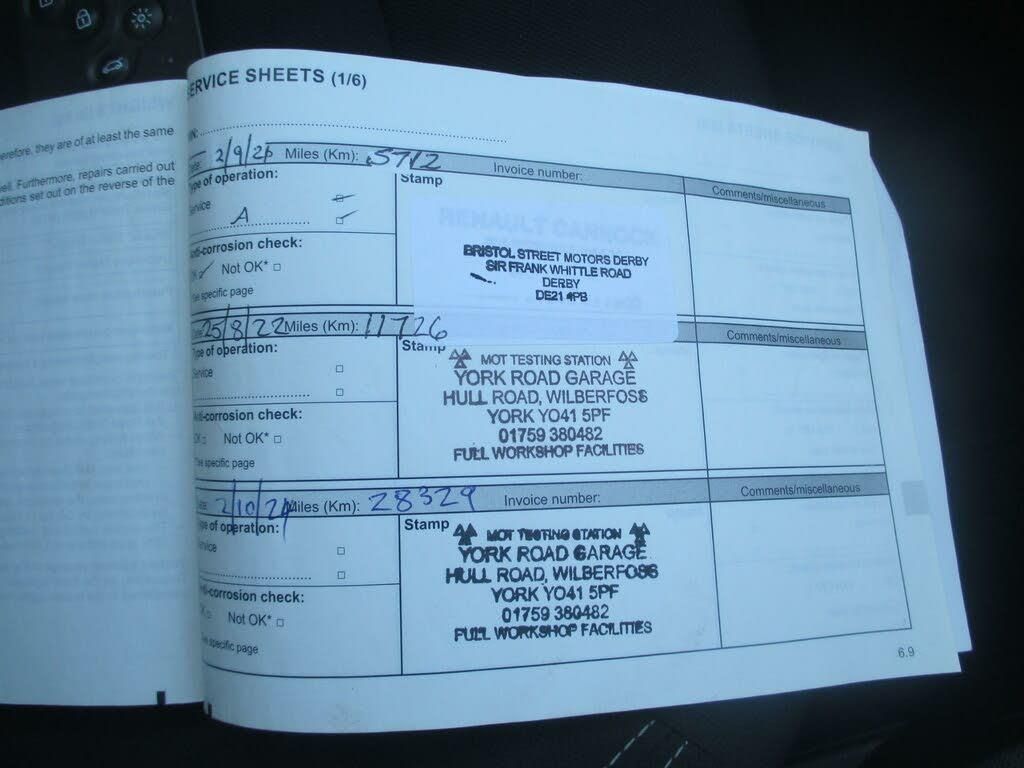 erefore, they are of at least the same
ell. Furthermore, repairs carried out
ditions set out on the reverse of the
ERVICE SHEETS (1/6)
Miles (Km): 5712 Invoice number: Comments/miscellaneous
ype of operation: Stamp
ervice
A
RENAULT CANNOCK
BRISTOL STREET MOTORS DERBY
SIR FRANK WHITTLE ROAD
DERBY
DE21 4PB
nti-corrosion check:
OK Not OK* 
ee specific page
25/8/22 Miles (Km): 11726 Comments/miscellaneous
Type of operation: Stamp
ervice
MOT TESTING STATION
YORK ROAD GARAGE
HULL ROAD, WILBERFOSS
YORK YO41 5PF
01759 380482
FULL WORKSHOP FACILITIES
nti-corrosion check:
OK Not OK*
ee specific page
2/10/24 Miles (Km): 28329 Invoice number: Comments/miscellaneous
ype of operation: Stamp
ervice
MOT TESTING STATION
YORK ROAD GARAGE
HULL ROAD, WILBERFOSS
YORK YO41 5PF
01759 380482
FULL WORKSHOP FACILITIES
nti-corrosion check:
OK Not OK*
ee specific page
6.9